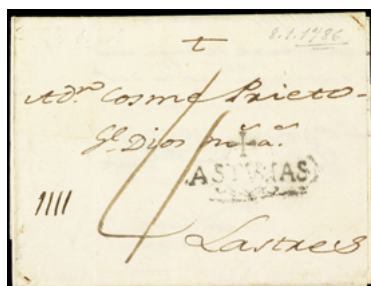 8.1.1786
A Dn Cosme Prieto
Ge Dios ms as
4
ASTURIAS
IIII
Lastres